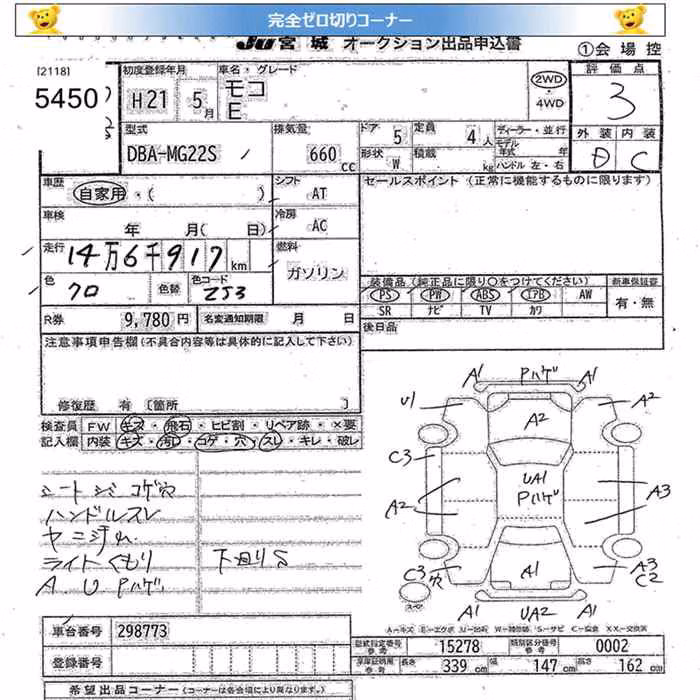 完全ゼロ切りコーナー
JU宮城 オークション出品申込書
①会場控
[2118]
5450
初度登録年月
H21 5月
車名・グレード
モコ
E
2WD
・4WD
評価点
3
外装 内装
D C
型式
DBA-MG22S
排気量
660 cc
ドア 5
定員 4人
形状 W
積載 kg
ディーラー・並行
モデル年式 年
ハンドル 左・右
車歴
自家用・( )
シフト
AT
セールスポイント (正常に機能するものに限ります)
車検
年 月( 日)
冷房
AC
走行
14万6千917 km
燃料
ガソリン
色
クロ
色替
色コード
ZJ3
装備品(純正品に限り○をつけてください)
新車保証書
PS PW ABS エアB AW
SR ナビ TV カワ
有・無
R券 9,780円
名変通知期限 月 日
後日品
注意事項申告欄(不具合内容等は具体的に記入して下さい)
修復歴 有 〔箇所 〕
検査員記入欄
FW キズ・飛石・ヒビ割・リペア跡・×要
内装 キズ・汚レ・コゲ・穴・スレ・キレ・破レ
シートシミコゲ穴
ハンドルスレ
ヤニ汚れ
ライトくもり
下回りS
A.U.Pハゲ
A1 Pハゲ A1
U1 A2 A2
C3 A2 UA1 Pハゲ A3
C3 穴 A1 A3 C2
スペア A1 UA2 A1
A=キズ E=エクボ U=凹み W=補修跡 S=サビ C=腐食 XX=交換済
車台番号 298773
登録番号
型式指定番号 参考 15278
類別区分番号 参考 0002
長さ 339 cm 幅 147 cm 高さ 162 cm
希望出品コーナー (コーナーは各会場により異なります。)